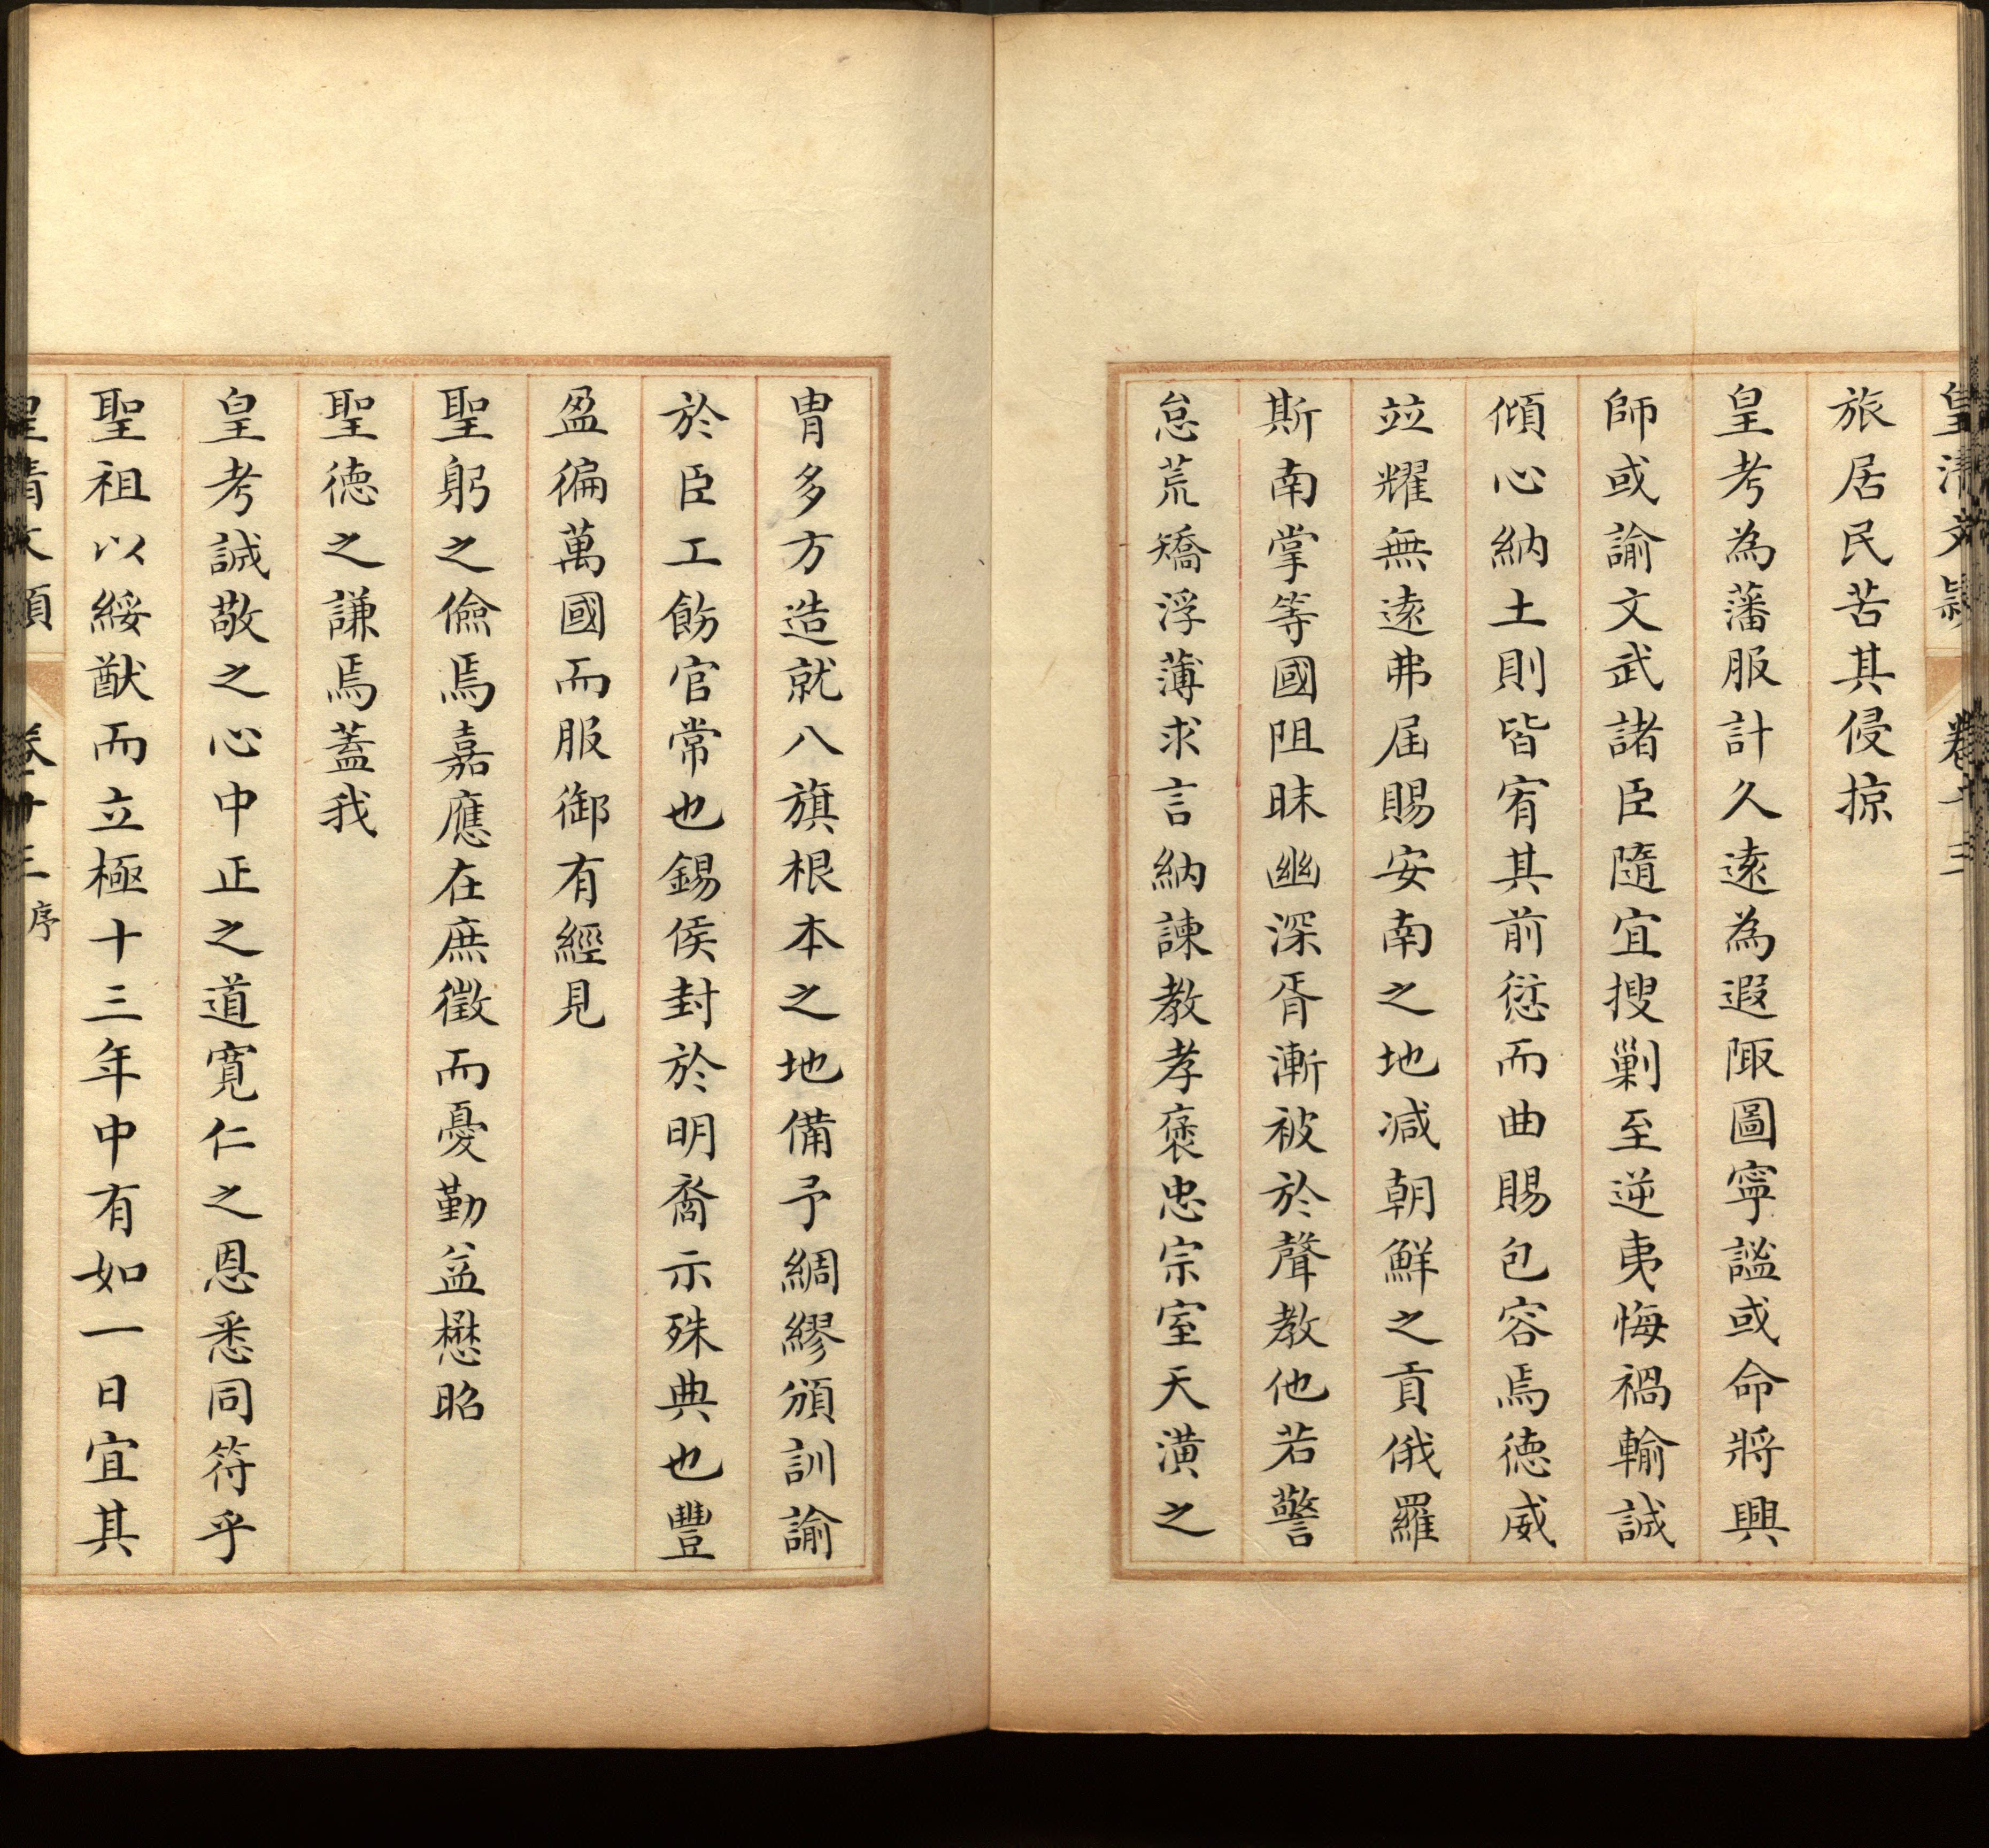 旅居民苦其侵掠
皇考為藩服計久遠為遐陬圖寧謐或命將興
師或諭文武諸臣隨宜搜剿至逆夷悔禍輸誠
傾心納土則皆宥其前愆而曲賜包容焉德威
竝耀無遠弗屆賜安南之地減朝鮮之貢俄羅
斯南掌等國阻昧幽深胥漸被於聲教他若警
怠荒矯浮薄求言納諫教孝褒忠宗室天潢之
胄多方造就八旗根本之地備予綢繆頒訓諭
於臣工飭官常也錫侯封於明裔示殊典也豐
盈徧萬國而服御有經見
聖躬之儉焉嘉應在庶徵而憂勤益懋昭
聖德之謙焉蓋我
皇考誠敬之心中正之道寬仁之恩悉同符乎
聖祖以綏猷而立極十三年中有如一日宜其
序